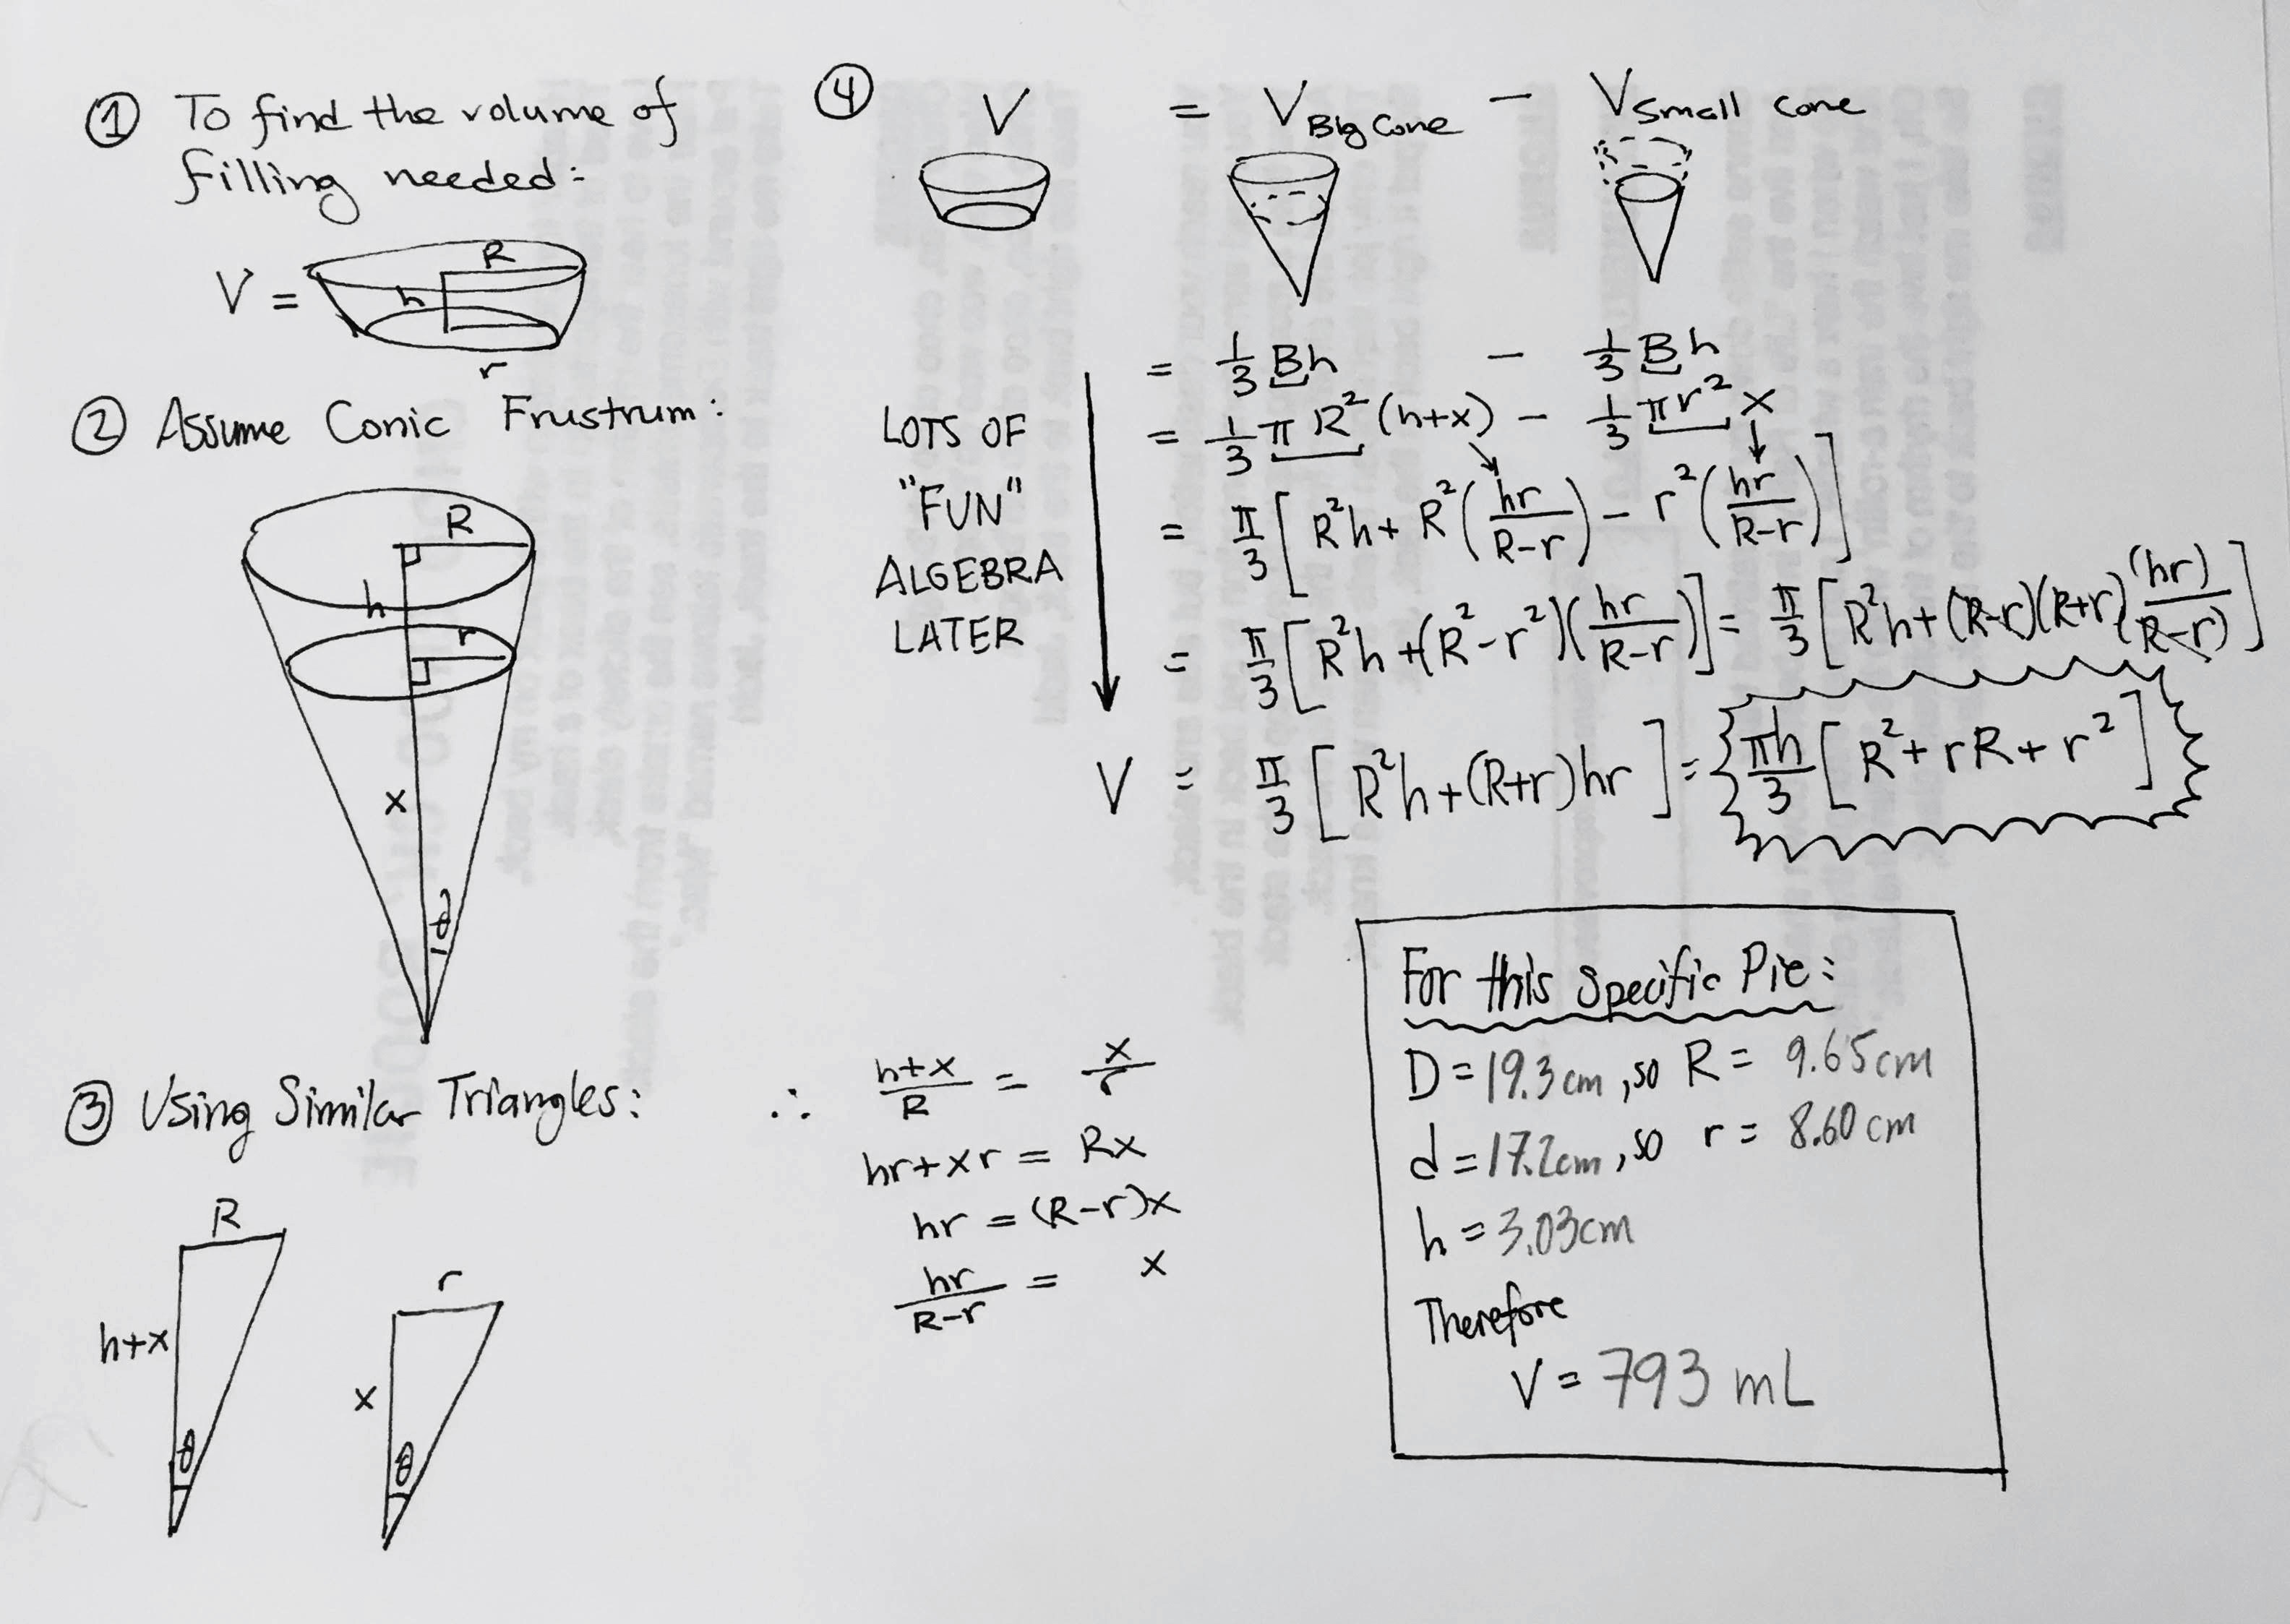 ① To find the volume of
filling needed:
V =
R
h
r
② Assume Conic Frustrum:
R
h
r
x
θ
③ Using Similar Triangles:
R
h+x
θ
r
x
θ
∴ (h+x)/R = x/r
hr+xr = Rx
hr = (R-r)x
hr/(R-r) = x
④ V = V Big Cone - V Small cone
= 1/3 Bh - 1/3 Bh
= 1/3 π R² (h+x) - 1/3 π r² x
= π/3 [ R²h + R² (hr/(R-r)) - r² (hr/(R-r)) ]
= π/3 [ R²h + (R²-r²)(hr/(R-r)) ] = π/3 [ R²h + (R-r)(R+r) (hr)/(R-r) ]
V = π/3 [ R²h + (R+r)hr ] = πh/3 [ R² + rR + r² ]
LOTS OF
"FUN"
ALGEBRA
LATER
For this specific Pie:
D = 19.3 cm, so R = 9.65 cm
d = 17.2 cm, so r = 8.60 cm
h = 3.03 cm
Therefore
V = 793 mL